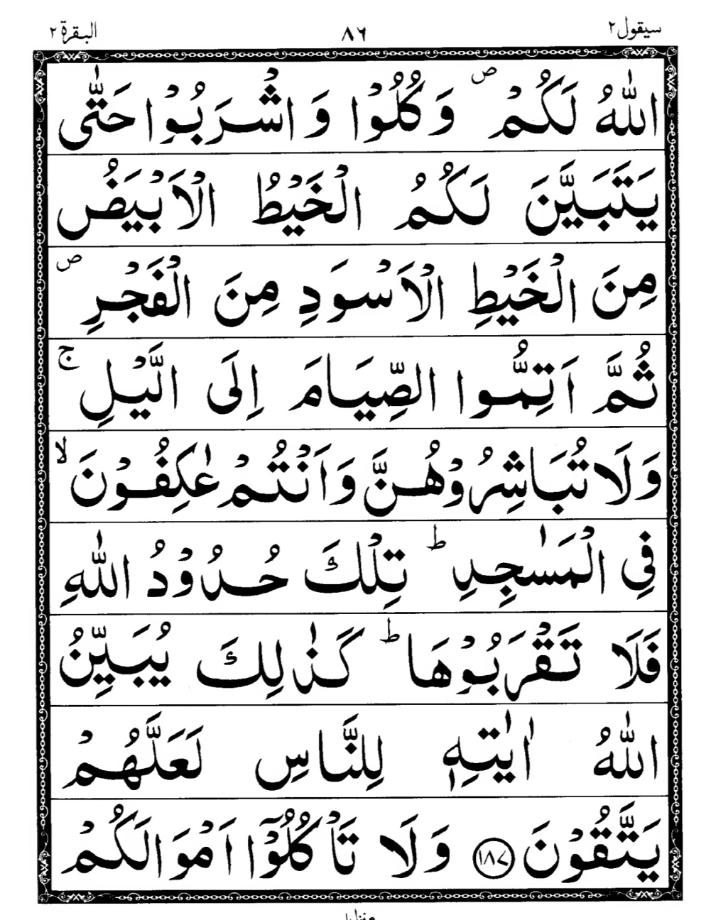 سيقول٢ ٨٦ البقرة٢
اللّٰهُ لَكُمْ ۖ وَكُلُوْا وَاشْرَبُوْا حَتّٰى
يَتَبَيَّنَ لَكُمُ الْخَيْطُ الْاَبْيَضُ
مِنَ الْخَيْطِ الْاَسْوَدِ مِنَ الْفَجْرِ ۖ
ثُمَّ اَتِمُّوا الصِّيَامَ اِلَى الَّيْلِ ۚ
وَلَا تُبَاشِرُوْهُنَّ وَاَنْتُمْ عٰكِفُوْنَ ۙ
فِى الْمَسٰجِدِ ؕ تِلْكَ حُدُوْدُ اللّٰهِ
فَلَا تَقْرَبُوْهَا ؕ كَذٰلِكَ يُبَيِّنُ
اللّٰهُ اٰيٰتِهٖ لِلنَّاسِ لَعَلَّهُمْ
يَتَّقُوْنَ ﴿١٨٧﴾ وَلَا تَاْكُلُوْٓا اَمْوَالَكُمْ